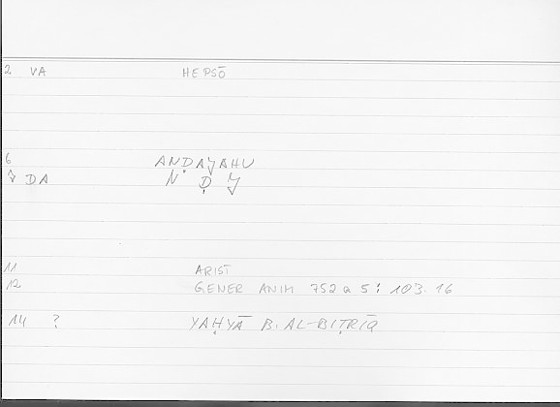 2 VA HEPSŌ
6 ANḌAJAHU
7 DA N Ḍ J
11 ARIST
12 GENER ANIM 752 a 5 : 103.16
14 ? YAḤYĀ B. AL-BIṬRĪQ